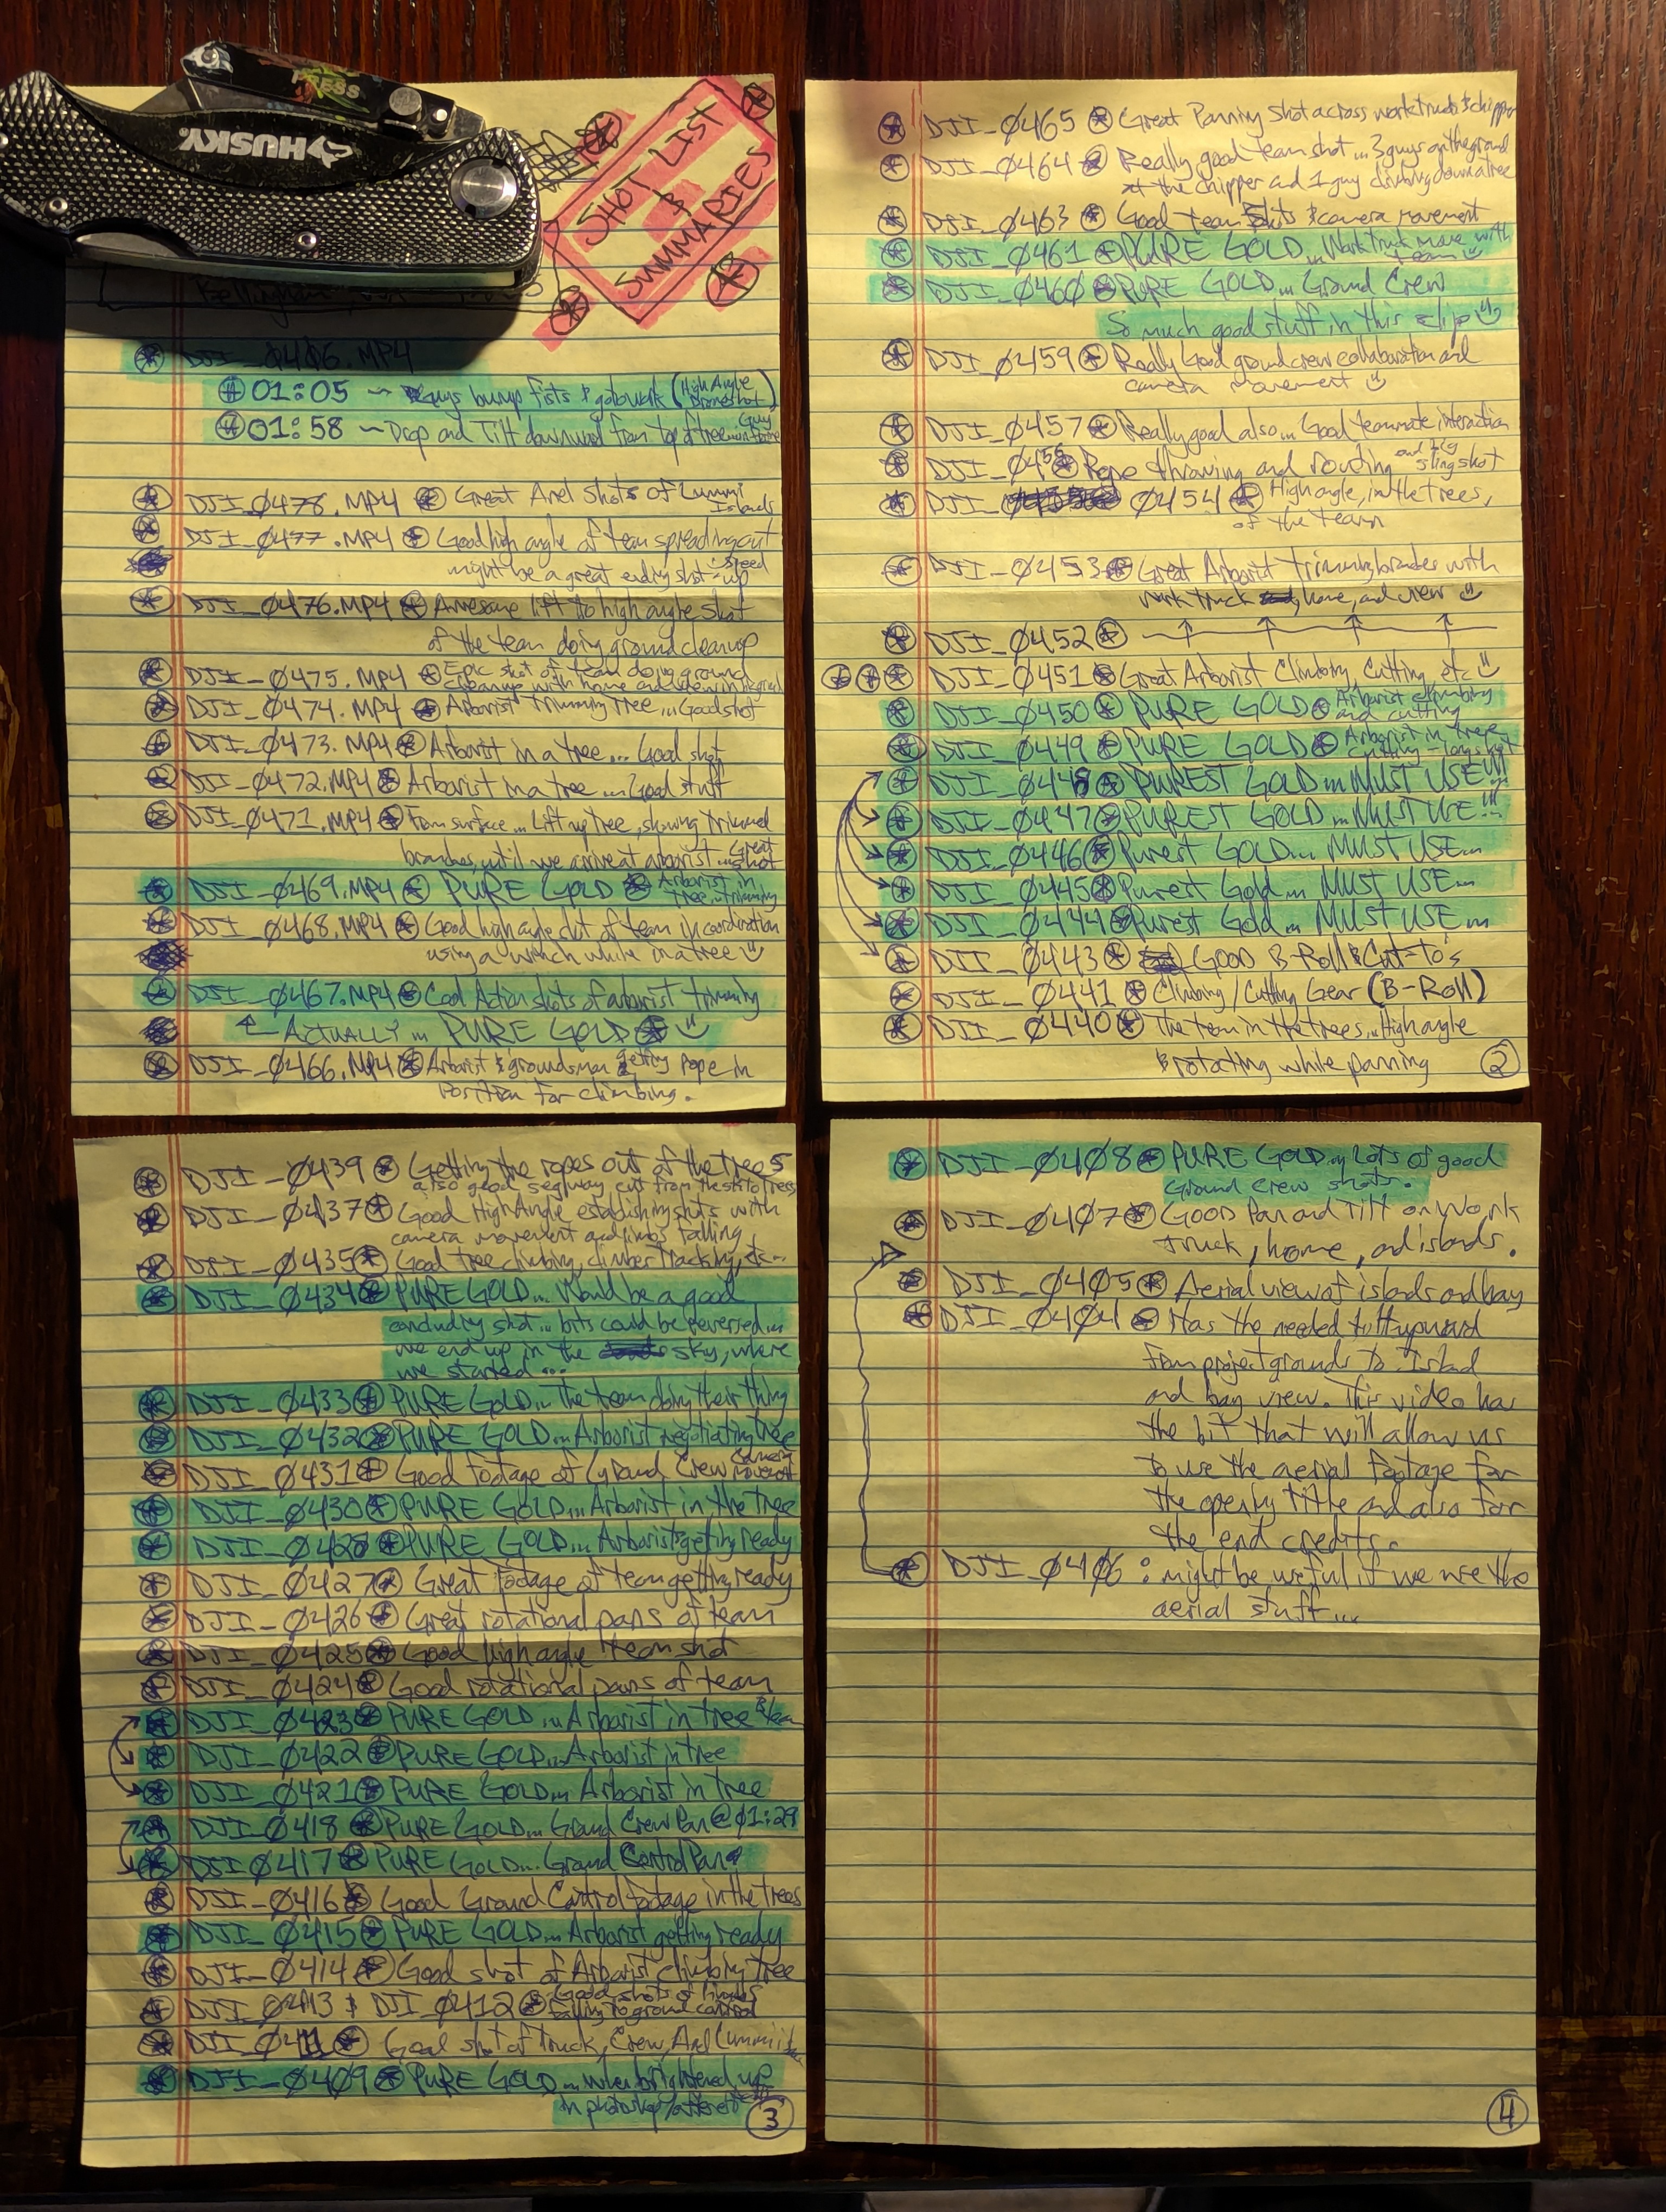 HUSKY
SHOT LIST
&
SUMMARIES
DJI_0406.MP4
01:05 ~ Guys bump fists & go to work (High Angle
Drone shot)
01:58 ~ Drop and Tilt downward from top of tree
DJI_0478.MP4 Great Ariel Shots of Lummi
Islands
DJI_0477.MP4 Good high angle of team spreading out
might be a great ending shot - speed
up
DJI_0476.MP4 Awesome lift to high angle shot
of the team doing ground cleanup
DJI_0475.MP4 Epic shot of team doing ground
cleanup with home and view in
DJI_0474.MP4 Arborist trimming tree... Good shot
DJI_0473.MP4 Arborist in a tree... Good shot
DJI_0472.MP4 Arborist in a tree... Good stuff
DJI_0471.MP4 From surface... Lift up tree, showing trimmed
branches, until we arrive at arborist... Great
shot
DJI_0469.MP4 PURE GOLD Arborist in
tree... trimming
DJI_0468.MP4 Good high angle shot of team in coordination
using a winch while in a tree
DJI_0467.MP4 Cool Action shots of arborist trimming
ACTUALLY... PURE GOLD
DJI_0466.MP4 Arborist & groundsman getting rope in
position for climbing.
DJI_0465 Great Panning Shot across work truck & chipper
DJI_0464 Really good team shot... 3 guys on the ground
at the chipper and 1 guy climbing down a tree
DJI_0463 Good team shots & camera movement
DJI_0461 PURE GOLD... Work truck move with
team
DJI_0460 PURE GOLD... Ground Crew
So much good stuff in this clip
DJI_0459 Really Good ground crew collaboration and
camera movement
DJI_0457 Really good also... Good teammate interaction
DJI_0456 Rope throwing and routing and big
slingshot
DJI_0454 High angle, in the trees,
of the team
DJI_0453 Great Arborist trimming branches with
work truck, home, and crew
DJI_0452
DJI_0451 Great Arborist Climbing, Cutting, etc
DJI_0450 PURE GOLD Arborist climbing
and cutting
DJI_0449 PURE GOLD Arborist in tree
cutting - long shot
DJI_0448 PUREST GOLD... MUST USE!!!
DJI_0447 PUREST GOLD... MUST USE!!!
DJI_0446 Purest GOLD... MUST USE...
DJI_0445 Purest Gold... MUST USE...
DJI_0444 Purest Gold... MUST USE...
DJI_0443 GOOD B-Roll & Cut-To's
DJI_0441 Climbing/Cutting Gear (B-Roll)
DJI_0440 The team in the trees... High angle
& rotating while panning
2
DJI_0439 Getting the ropes out of the trees
also good segway cut from the sky to trees
DJI_0437 Good High Angle establishing shots with
camera movement and limbs falling
DJI_0435 Good tree climbing, climber tracking, etc...
DJI_0434 PURE GOLD... Would be a good
concluding shot... bits could be reversed...
we end up in the sky, where
we started...
DJI_0433 PURE GOLD... The team doing their thing
DJI_0432 PURE GOLD... Arborist negotiating tree
DJI_0431 Good footage of Ground Crew Camera
movement
DJI_0430 PURE GOLD... Arborist in the tree
DJI_0428 PURE GOLD... Arborists getting ready
DJI_0427 Great footage of team getting ready
DJI_0426 Great rotational pans of team
DJI_0425 Good high angle team shot
DJI_0424 Good rotational pans of team
DJI_0423 PURE GOLD... Arborist in tree
DJI_0422 PURE GOLD... Arborist in tree
DJI_0421 PURE GOLD... Arborist in tree
DJI_0418 PURE GOLD... Ground Crew Pan @ 01:29
DJI_0417 PURE GOLD... Ground Control Pan
DJI_0416 Good Ground Control footage in the trees
DJI_0415 PURE GOLD... Arborist getting ready
DJI_0414 Good shot of Arborist climbing tree
DJI_0413 & DJI_0412 Good shots of limbs
falling to ground control
DJI_0411 Good shot of truck, Crew, And Lummi
DJI_0409 PURE GOLD... when brightened up
in photoshop/
3
DJI_0408 PURE GOLD... Lots of good
Ground crew shots.
DJI_0407 GOOD Pan and Tilt on Work
truck, home, and islands.
DJI_0405 Aerial view of islands and bay
DJI_0404 Has the needed tilt upward
from project grounds to Island
and bay view. This video has
the bit that will allow us
to use the aerial footage for
the opening title and also for
the end credits.
DJI_0406: might be useful if we use the
aerial stuff...
4